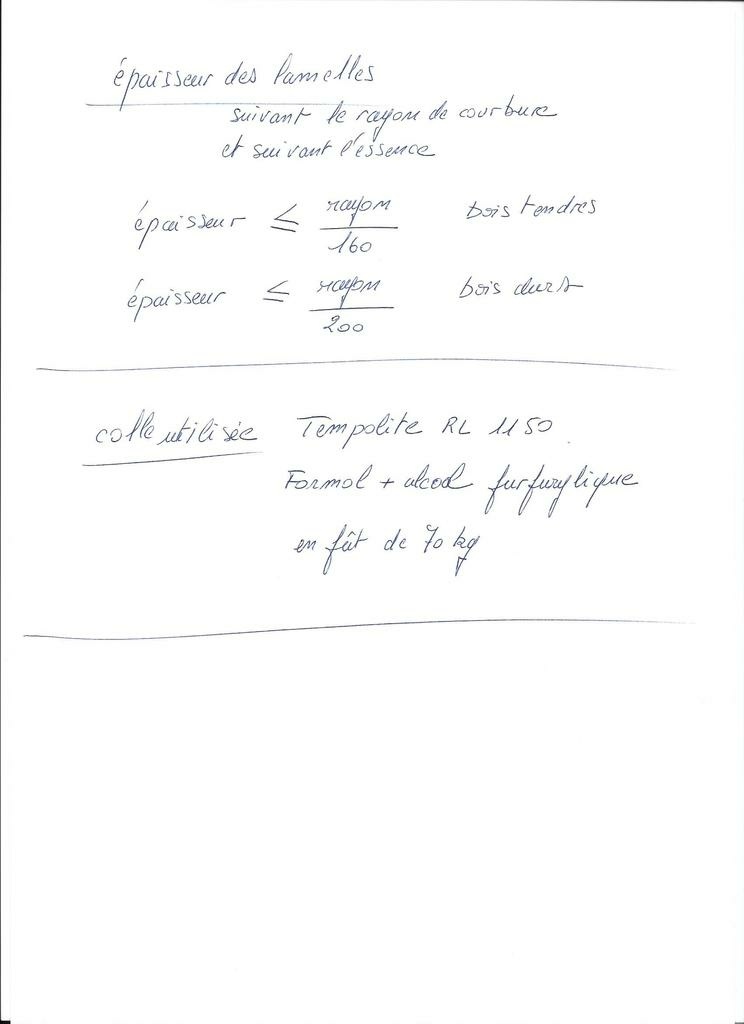 épaisseur des lamelles
suivant le rayon de courbure
et suivant l'essence
épaisseur ≤ rayon / 160 bois tendres
épaisseur ≤ rayon / 200 bois durs
colle utilisée Tempolite RL 1150
Formol + alcool furfurylique
en fût de 70 kg